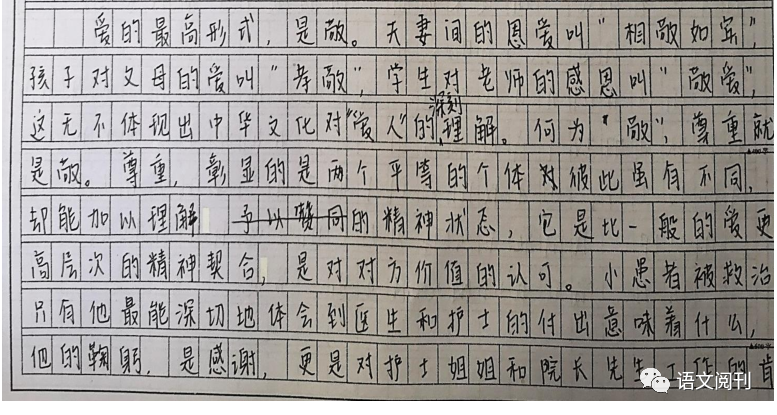 爱的最高形式，是敬。夫妻间的恩爱叫“相敬如宾”，
孩子对父母的爱叫“孝敬”，学生对老师的感恩叫“敬爱”，
这无不体现出中华文化对“爱人”的深刻理解。何为“敬”，尊重就
是敬。尊重，彰显的是两个平等的个体对彼此虽有不同，
却能加以理解 予以赞同的精神状态，它是比一般的爱更
高层次的精神契合，是对对方价值的认可。小患者被救治
只有他最能深切地体会到医生和护士的付出意味着什么，
他的鞠躬，是感谢，更是对护士姐姐和院长先生工作的肯
语文阅刊